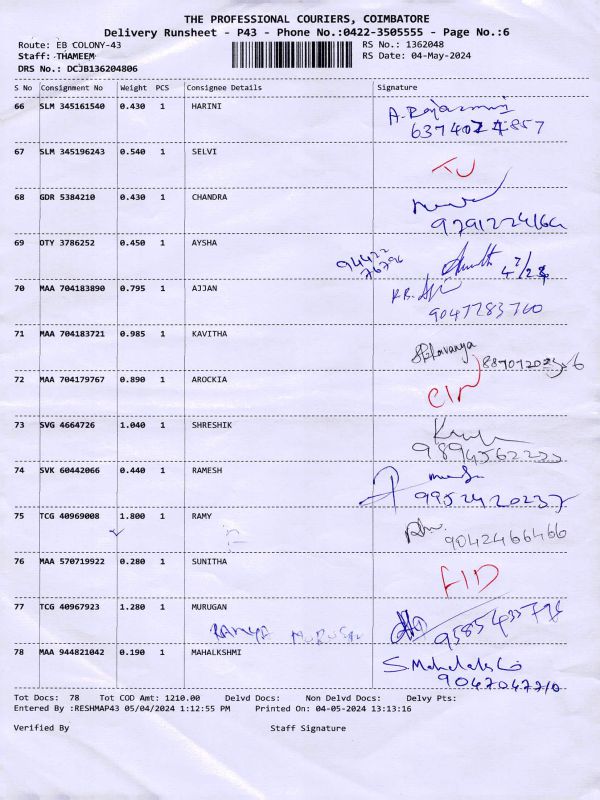 THE PROFESSIONAL COURIERS, COIMBATORE
Delivery Runsheet - P43 - Phone No.:0422-3505555 - Page No.:6
Route: EB COLONY-43 RS No.: 1362048
Staff: THAMEEM RS Date: 04-May-2024
DRS No.: DCJB136204806
S No Consignment No Weight PCS Consignee Details Signature
66 SLM 345161540 0.430 1 HARINI
67 SLM 345196243 0.540 1 SELVI
68 GDR 5384210 0.430 1 CHANDRA
69 OTY 3786252 0.450 1 AYSHA
94422
76796
70 MAA 704183890 0.795 1 AJJAN
9047283760
71 MAA 704183721 0.985 1 KAVITHA
72 MAA 704179767 0.890 1 AROCKIA
73 SVG 4664726 1.040 1 SHRESHIK
74 SVK 60442066 0.440 1 RAMESH
75 TCG 40969008 1.800 1 RAMY
9042466466
76 MAA 570719922 0.280 1 SUNITHA
77 TCG 40967923 1.280 1 MURUGAN
RAMYA MURUGAN
78 MAA 944821042 0.190 1 MAHALKSHMI
9047047210
Tot Docs: 78 Tot COD Amt: 1210.00 Delvd Docs: Non Delvd Docs: Delvy Pts:
Entered By :RESHMAP43 05/04/2024 1:12:55 PM Printed On: 04-05-2024 13:13:16
Verified By Staff Signature